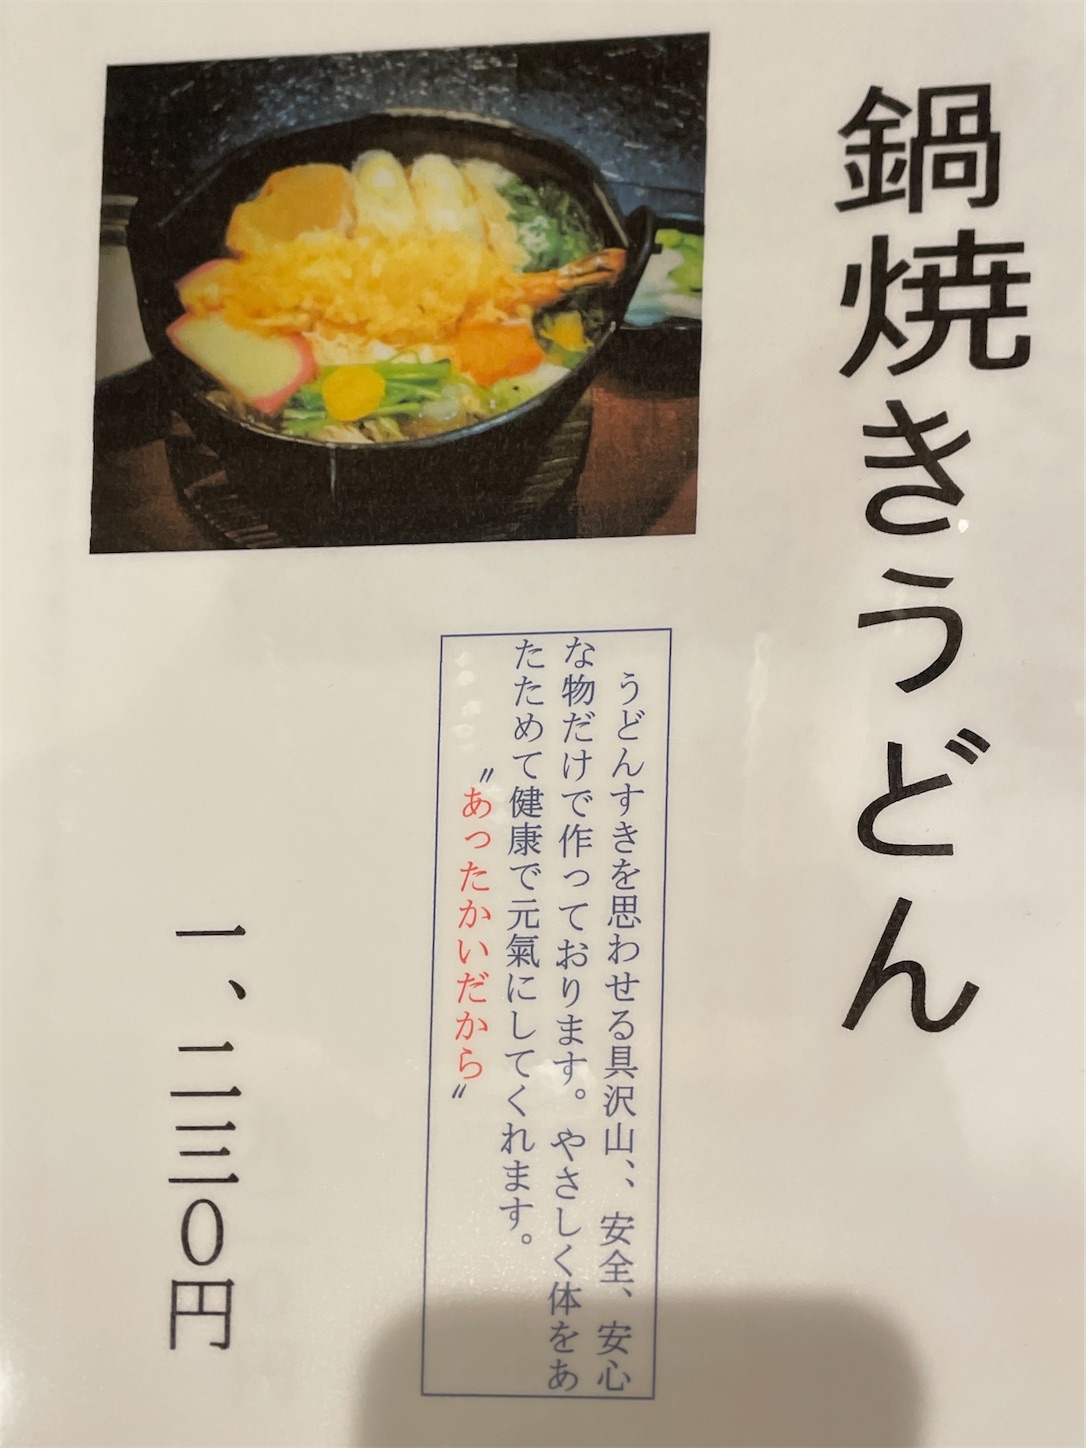 鍋焼きうどん
うどんすきを思わせる具沢山、、安全、安心
な物だけで作っております。やさしく体をあ
たためて健康で元氣にしてくれます。
〝あったかいだから〟
一、二三〇円